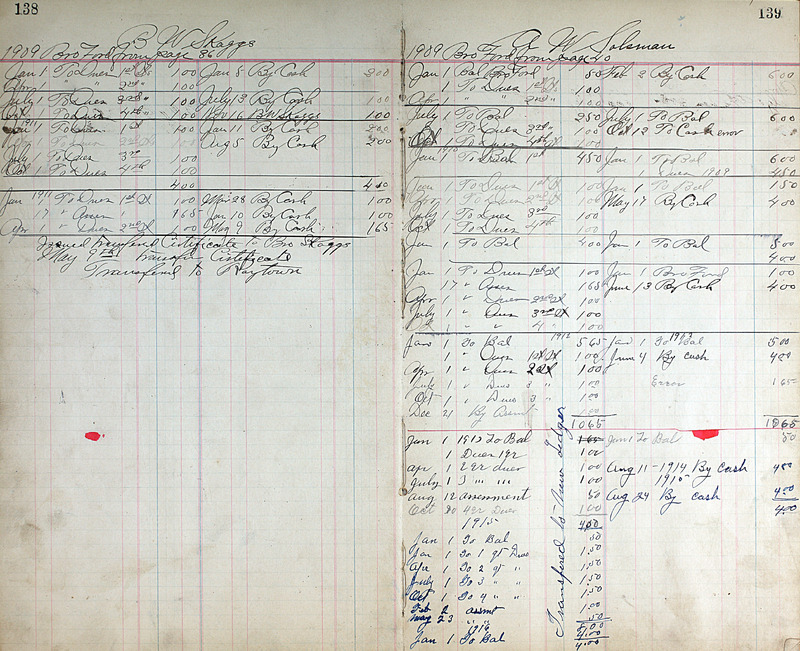 138
B W Skaggs
1909 Bro Ford from page 86
Jan 1 To Dues 1st Qr 1 00 Jan 5 By Cash 2 00
Apr 1 " 2nd " 1 00
July 1 To Dues 3rd " 1 00 July 13 By Cash 1 00
Oct 1 To Dues 4th " 1 00 Nov 16 B W Skaggs 1 00
Jan 1 To Dues 1st 1 00 Jan 11 By Cash 2 00
1 00 Aug 5 By Cash 2 00
July 1 To Dues 3rd 1 00
Oct 1 To Dues 4th 1 00
4 00 4 00
Jan 1911 To Dues 1st Q 1 00 Mar 28 By Cash 1 00
17 " Assm 1 1 65 Jan 10 By Cash 1 00
Apr " Dues 2nd Q 1 00 May 9 By Cash 1 65
Issued Transferd Certificate to Bro Skaggs
May 9th Transfer Certificate
Transferd to Raytown
139
W Solsman
1909 Bro Ford from page 20
Jan 1 Bal Bro Ford 50 Feb 2 By Cash 6 00
1 To Dues 1st Q 1 00
Apr " " 2nd " 1 00
July 1 To Bal 2 50 July 1 To Bal 6 00
To Dues 3rd " 1 00 Oct 12 To Cash error
Oct 1 To Dues 4th Q 1 00
Jan 1 To Bal 1st 4 50 Jan 1 To Bal 6 00
1 Dues 1909 4 50
Jan 1 To Dues 1st Q 1 00 Jan 1 To Bal 1 50
Apr 1 To Dues 2nd Q 1 00 May 17 By Cash 4 00
July 1 To Dues 3rd 1 00
Oct 1 To Dues 4th 1 00
Jan 1 To Bal 4 00 Jan 1 To Bal 5 00
4 00
Jan 1 To Dues 1st Q 1 00 Jan 1 Bro Ford 1 00
17 " Assm 1 65 June 13 By Cash 4 00
Apr " Dues 2nd Q 1 00
July 1 " Dues 3rd Q 1 00
1 " " 4 " 1 00
1912 1913
Jan 1 To Bal 5 65 Jan 1 To Bal 5 00
1 " Dues 1st Q 1 00 June 4 By cash 4 00
Apr 1 " Dues 2nd 1 00
July 1 " Dues 3 " 1 00 Error 1 65
Oct 1 " Dues 3 " 1 00
Dec 21 By Assmt 1 00
10 65 10 65
Jan 1 1913 To Bal 1 65 Jan 1 To Bal 50
1 Dues 1 qr 1 00
Apr 1 2 qr dues 1 00 Aug 11 - 1914 By cash 4 00
July 1 3 " " " 1 00 1915
Aug 12 assessment 50 Aug 24 By cash 4 00
Oct 20 4 qr Dues 1 00 4 00
1915 4 50
Jan 1 To Bal 50
Jan 1 To 1 qr Dues 1 50
Apr 1 To 2 qr " 1 50
July 1 To 3 " " 1 50
Oct 1 To 4 " " 1 50
Feb 2 assmt 1 00
May 23 " " 50
1916
Jan 1 To Bal 4 00
Transfered to New Ledger